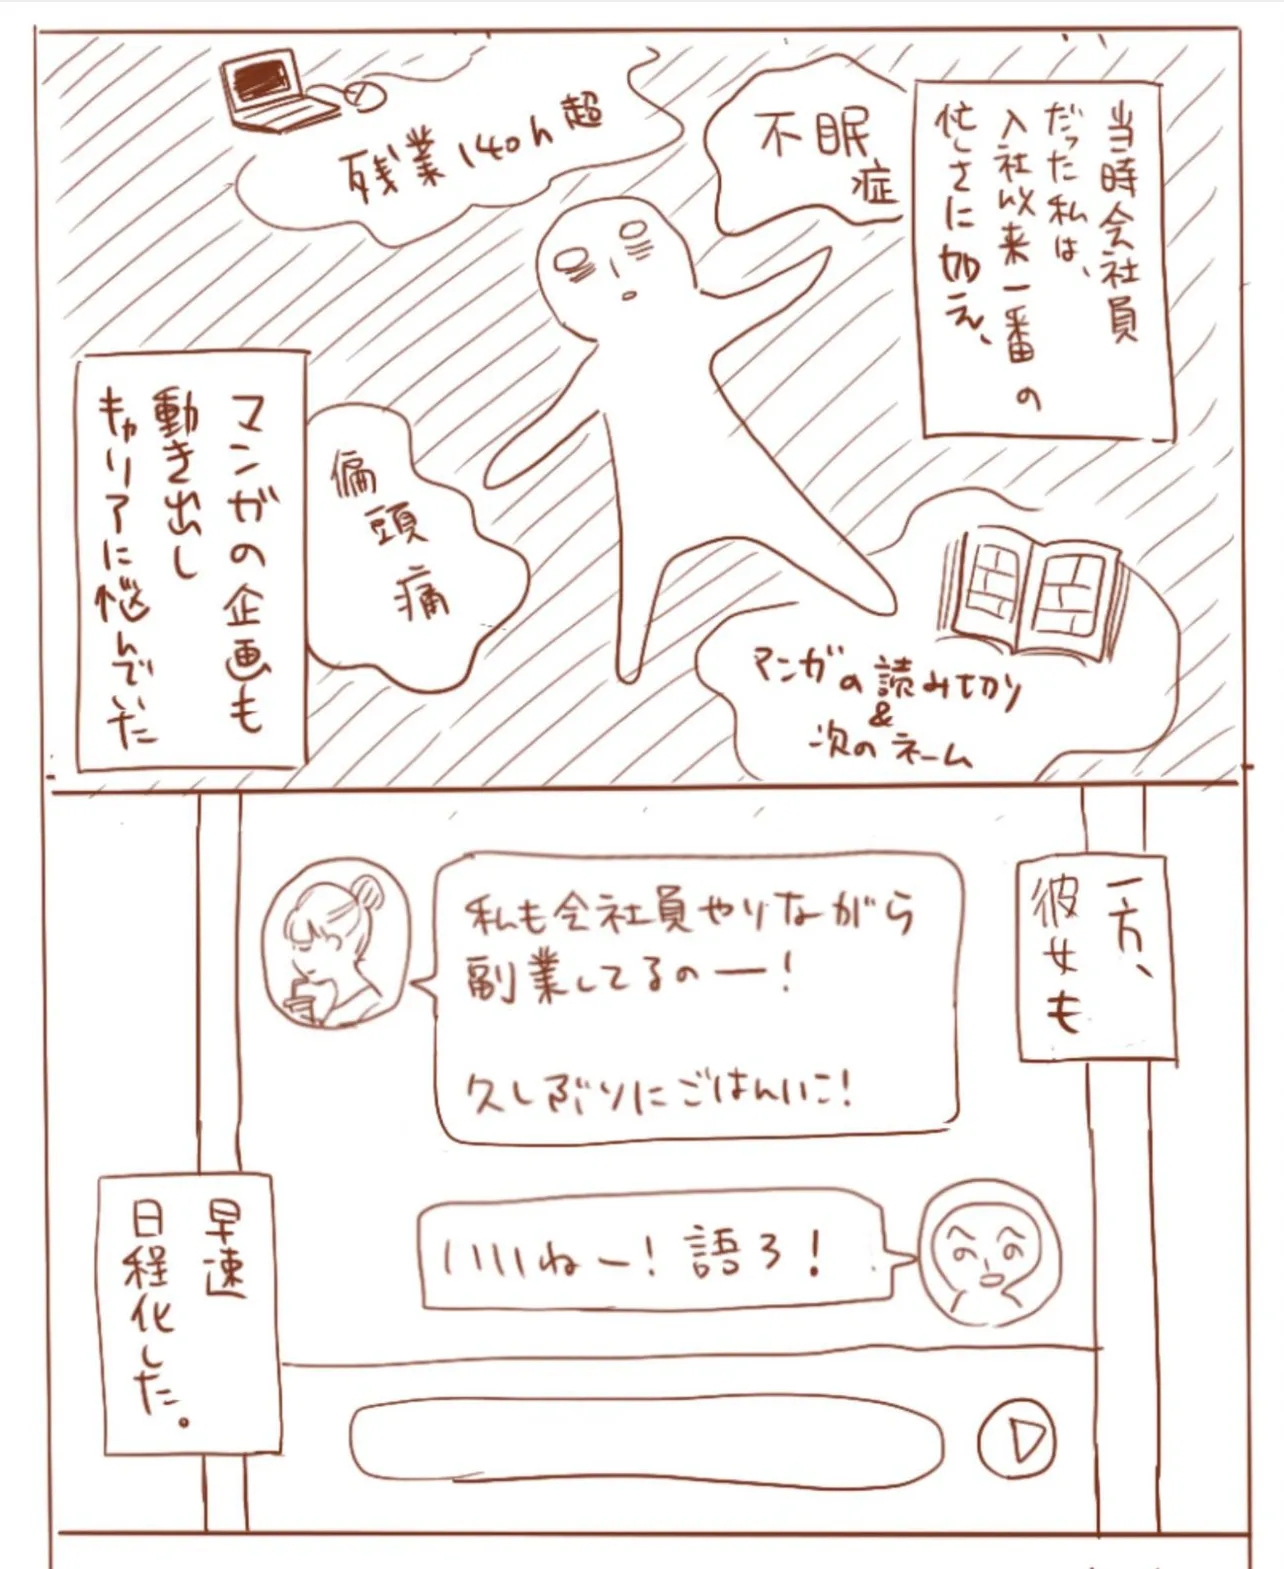 当時会社員
だった私は、
入社以来一番の
忙しさに加え、
不眠
症
残業140h超
偏
頭
痛
マンガの読み切り
&
次のネーム
マンガの企画も
動き出し
キャリアに悩んでいた
一方、
彼女も
私も会社員やりながら
副業してるのー!
久しぶりにごはんいこ!
いいねー!語ろ!
早速
日程化した。